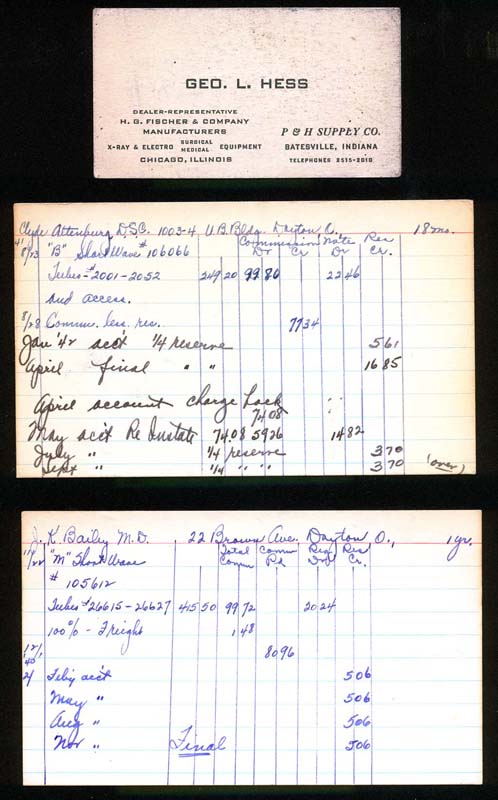 GEO. L. HESS
DEALER-REPRESENTATIVE
H. G. FISCHER & COMPANY
MANUFACTURERS
X-RAY & ELECTRO SURGICAL MEDICAL EQUIPMENT
CHICAGO, ILLINOIS
P & H SUPPLY CO.
BATESVILLE, INDIANA
TELEPHONES 2515-2010
Clyde Attenburg D.S.C. 1003-4 U.B. Bldg. Dayton O. 18 mo.
Commission Note Res
Dr Cr Dr Cr.
41
8/23 "B" Short Wave # 106066
Tubes-#2001-2052 249 20 99 80 22 46
and access.
8/28 Comm. less res. 77 34
Jan '42 acc't 1/4 reserve 5 61
April final " " 16 85
April account charge back
74 08
May acc't Re Instate 74 08 59 26 14 82
July " 1/4 reserve 3 70
Sept " 1/4 " " 3 70 (over)
J. K. Baily M.D. 22 Brown Ave. Dayton O., 1 yr.
Total Comm Res Res
Comm Pd Cr.
11/22 "M" Short Wave
# 105612
Tubes #26615-26627 415 50 99 72 20 24
100% - Freight 1 48
80 96
Feby acc't 5 06
May " 5 06
Aug " 5 06
Nov " Final 5 06